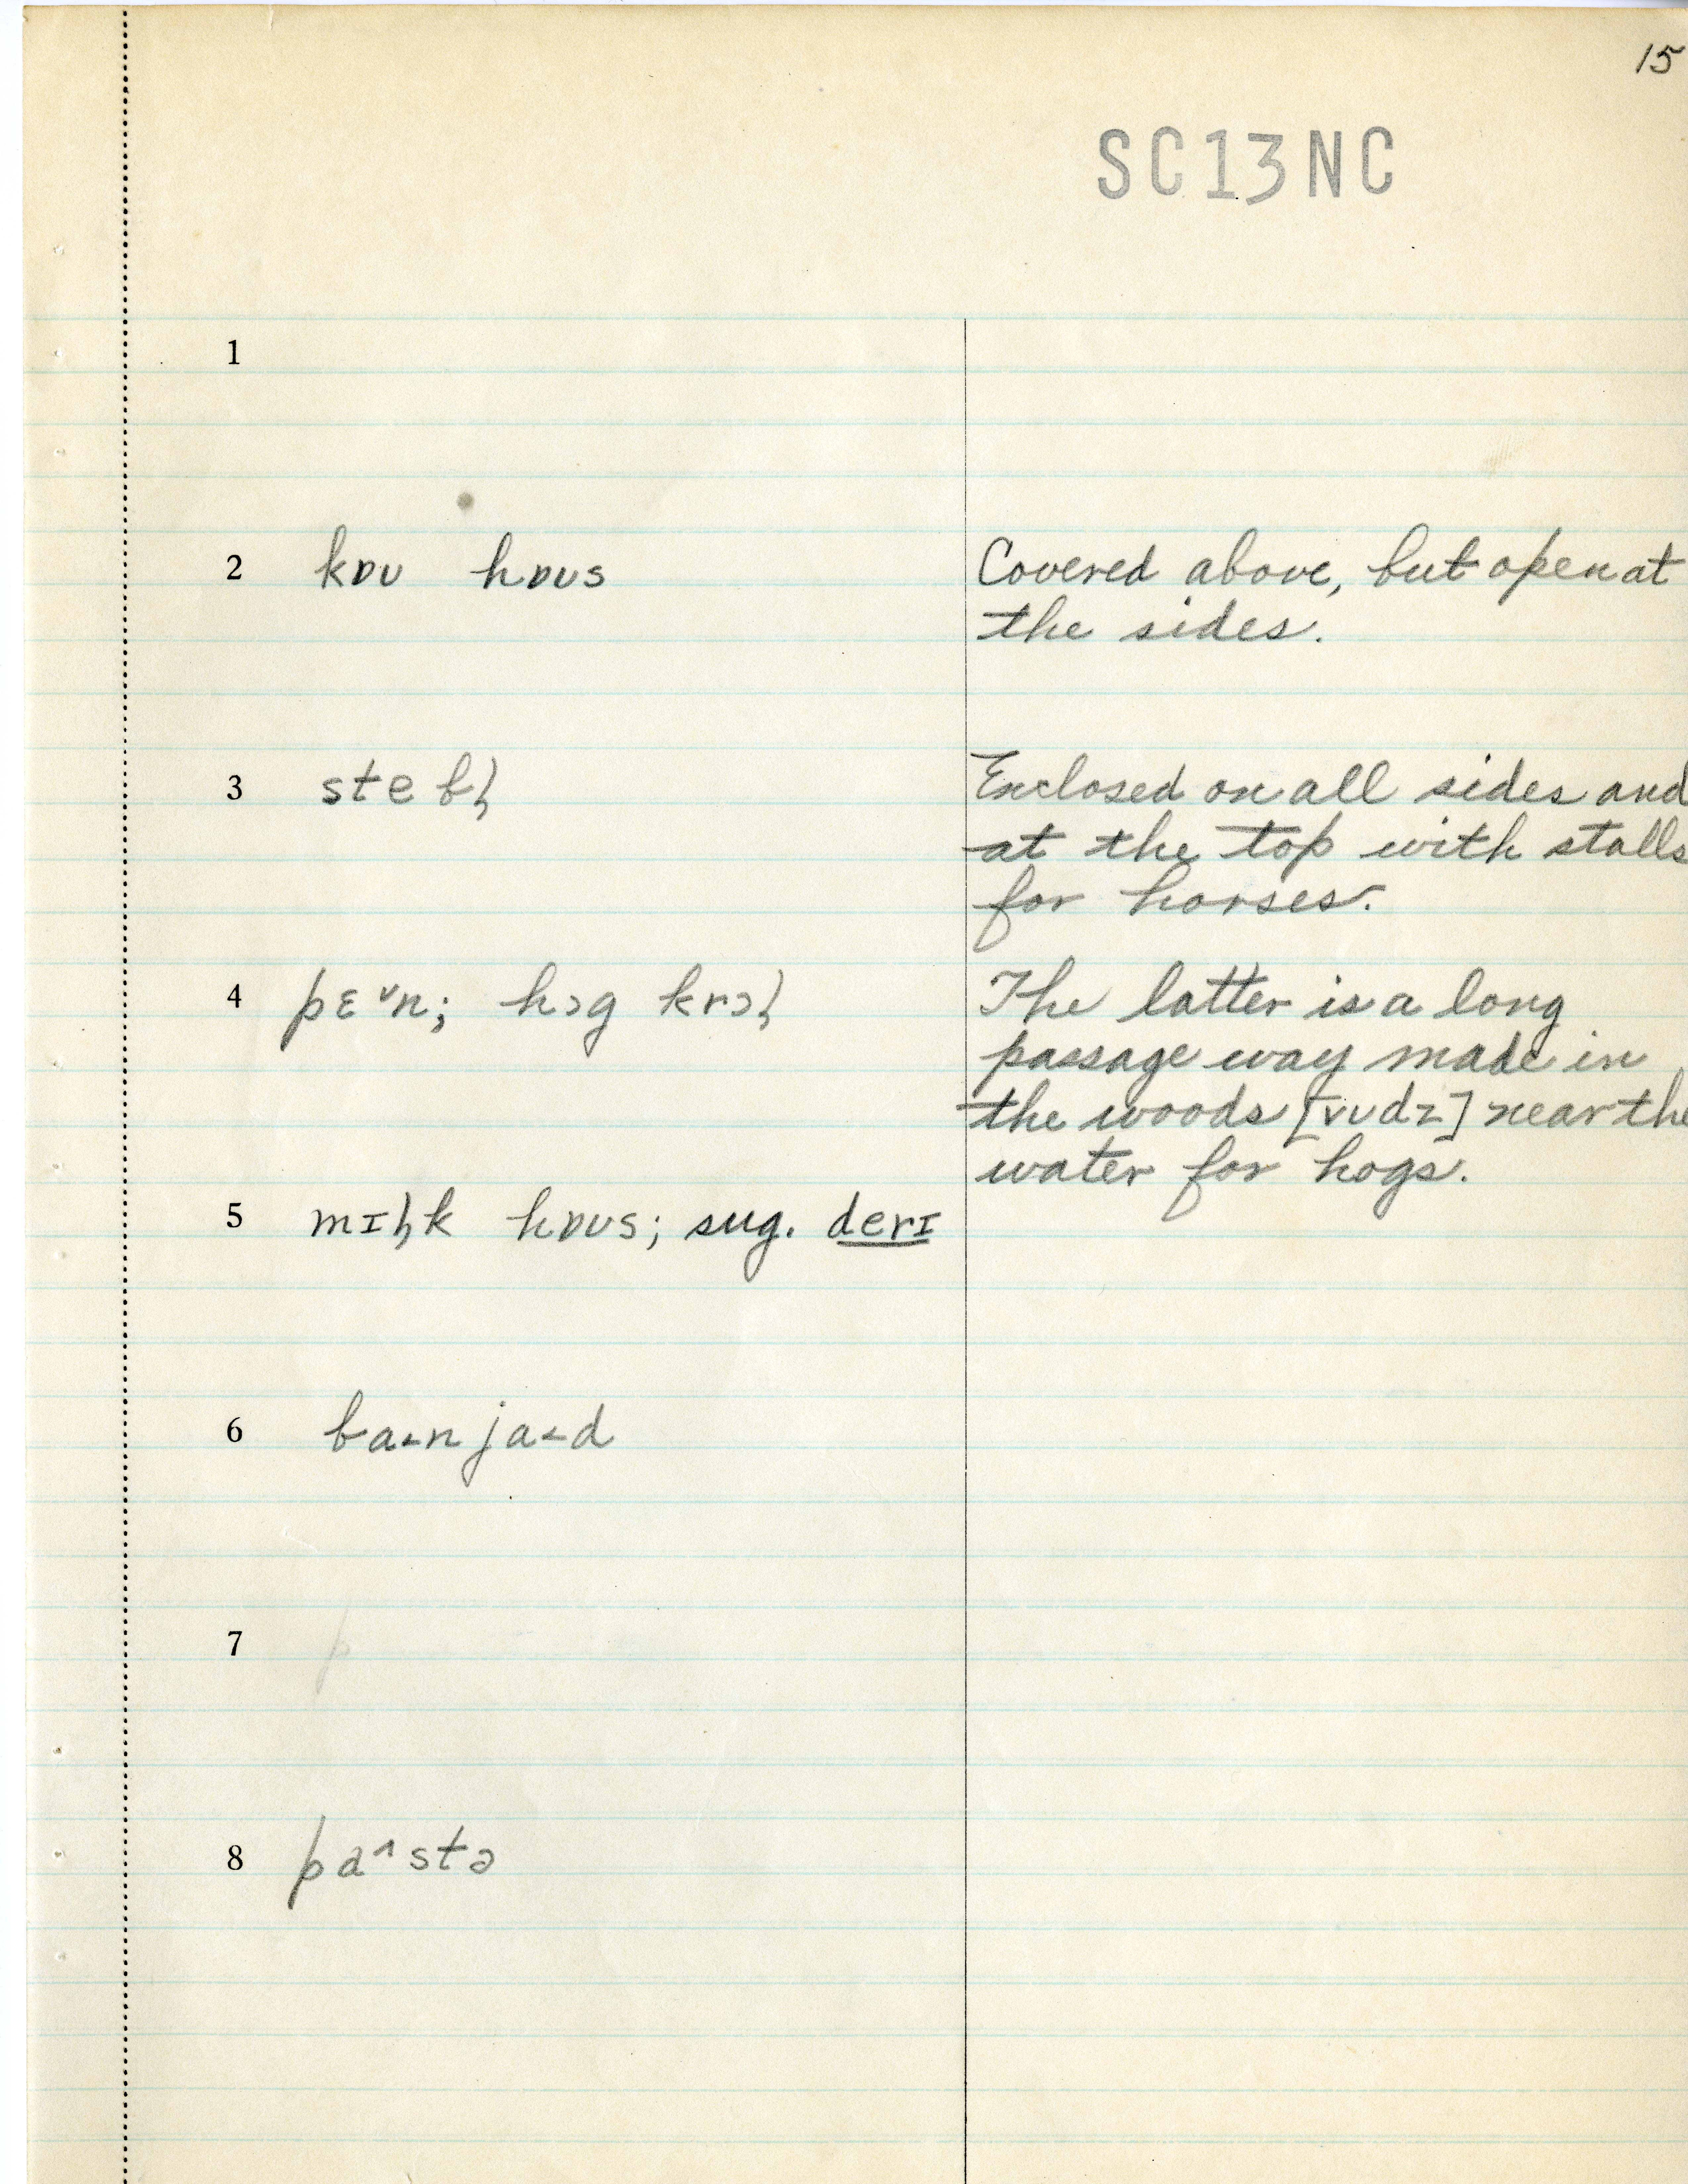 15
SC13NC
1
2 kɒʊ hɒʊs
Covered above, but open at
the sides.
3 stebɫ̩
Enclosed on all sides and
at the top with stalls
for horses.
4 pɛ˅n; hɔg krɔɫ
The latter is a long
passage way made in
the woods [vʊdz] near the
water for hogs.
5 mɪɫk hɒʊs; sug. derɪ
6 ba˂n ja˂d
7 p
8 pa˄stə